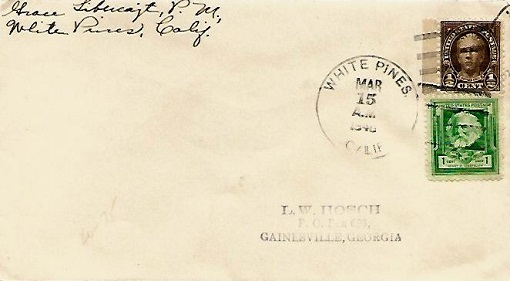 Grace P. M.,
White Pines, Calif.
WHITE PINES.
MAR
15
A.M
1940
CALIF
UNITED STATES POSTAGE
1/2 CENT 1/2
UNITED STATES POSTAGE
1 CENT 1
L. W. HOSCH
P. O. Box
GAINESVILLE, GEORGIA